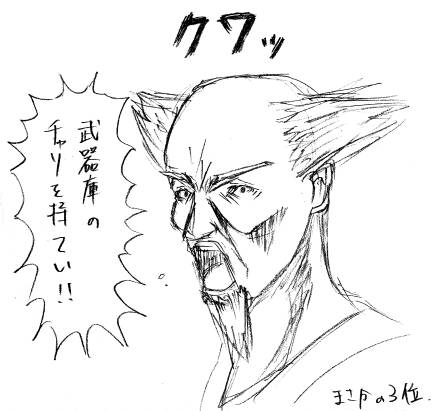 クワッ
武器庫の
チャリを持てい!!
まさかの3位.